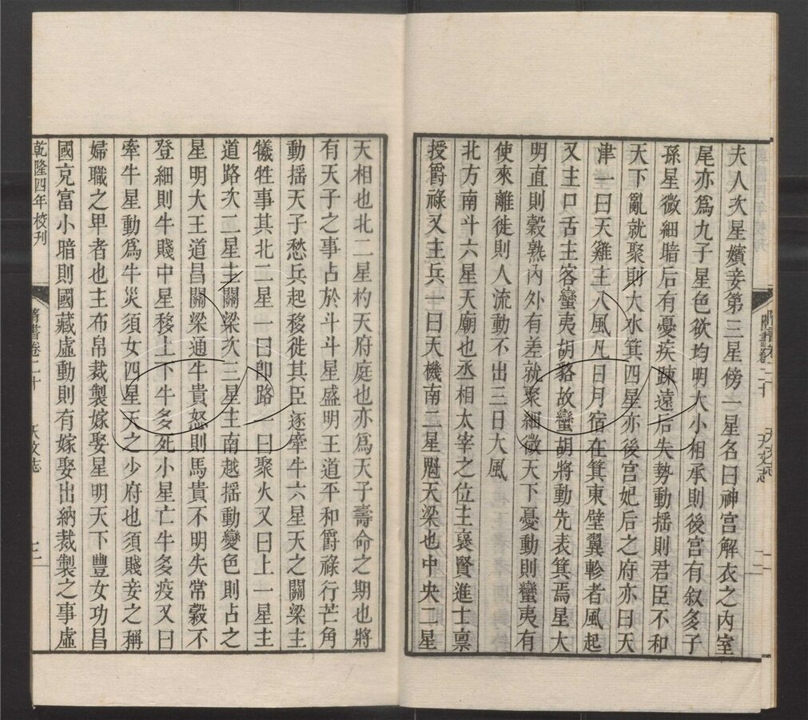 夫人次星嬪妾第三星傍一星名曰神宫解衣之内室
尾亦爲九子星色欲均明大小相承則後宫有叙多子
孫星微細暗后有憂疾疎遠后失勢動揺則君臣不和
天下亂就聚則大水箕四星亦後宫妃后之府亦曰天
津一曰天雞主八風凡日月宿在箕東壁翼軫者風起
又主口舌主客蠻夷胡貉故蠻胡將動先表箕焉星大
明直則穀熟内外有差就聚細微天下憂動則蠻夷有
使來離徙則人流動不出三日大風
北方南斗六星天廟也丞相太宰之位主襃賢進士禀
授爵祿又主兵一曰天機南二星魁天梁也中央二星
天相也北二星杓天府庭也亦爲天子壽命之期也將
有天子之事占於斗斗星盛明王道平和爵祿行芒角
動揺天子愁兵起移徙其臣逐牽牛六星天之關梁主
犧牲事其北二星一曰卽路一曰聚火又曰上一星主
道路次二星主關梁次三星主南越揺動變色則占之
星明大王道昌關梁通牛貴怒則馬貴不明失常穀不
登細則牛賤中星移上下牛多死小星亡牛多疫又曰
牽牛星動爲牛災須女四星天之少府也須賤妾之稱
婦職之卑者也主布帛裁製嫁娶星明天下豐女功昌
國充富小暗則國藏虚動則有嫁娶出納裁製之事虚
乾隆四年校刊 隋書卷二十 天文志 三